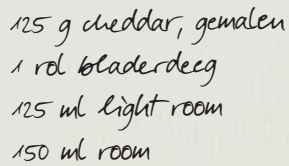 125 g cheddar, gemalen
1 rol bladerdeeg
125 ml light room
150 ml room